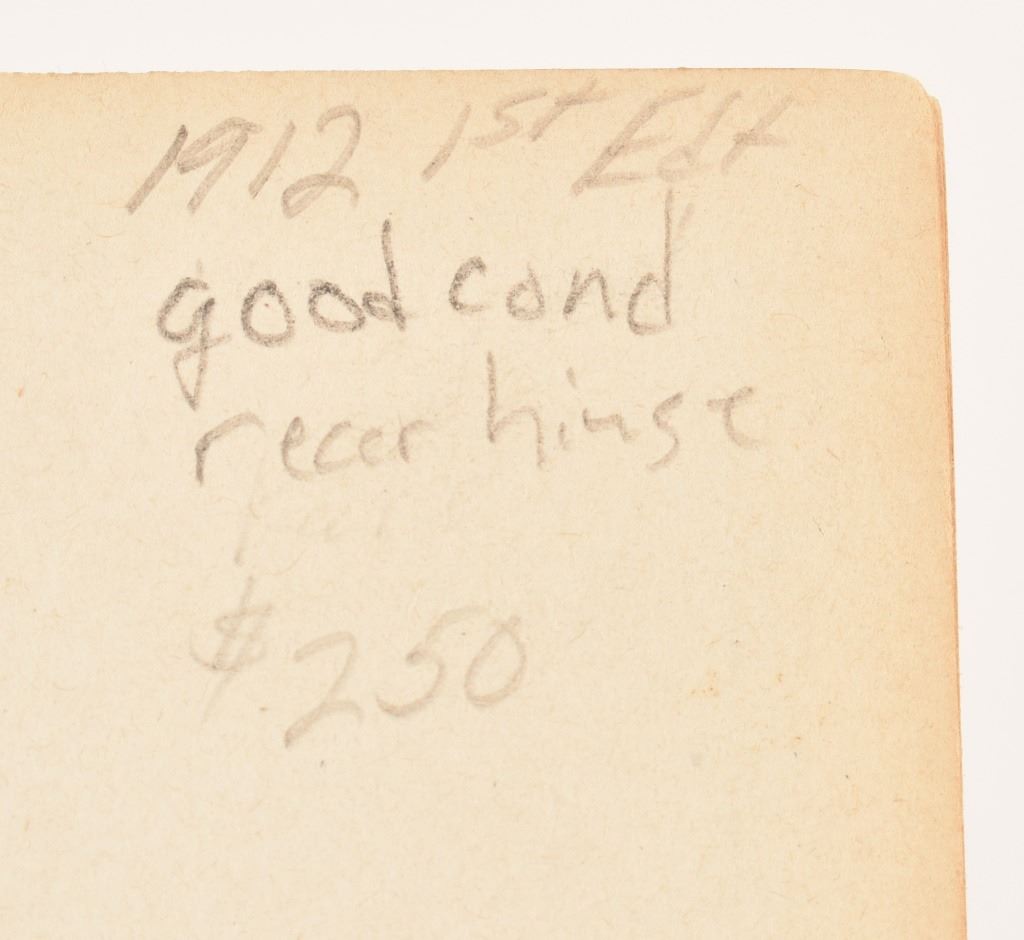 1912 1st Edt
good cond
rear hinge
$250